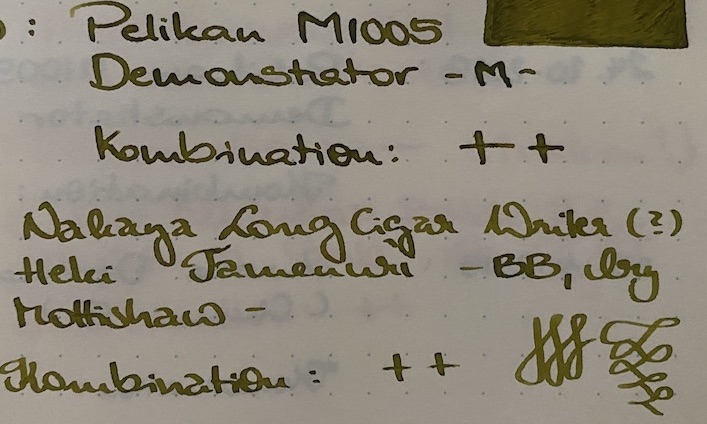 : Pelikan M1005
Demonstrator - M -
Kombination: ++
Nakaya Long Cigar Writer (?)
Heki Tamenuri - BB, by
Mottishaw -
Kombination: ++